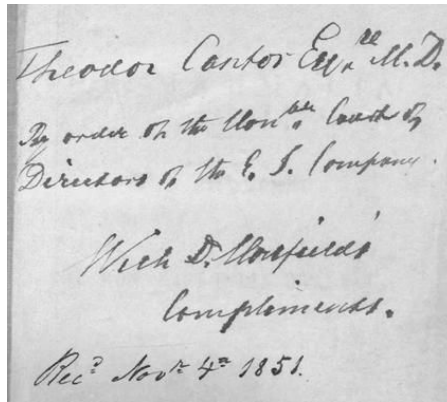 Theodor Cantor Esq.re M.D.
By order of the Hon.ble Court of
Directors of the E. I. Company.
With Dr. Horsfield's
Compliments.
Rec.d Nov.r 4th 1851.